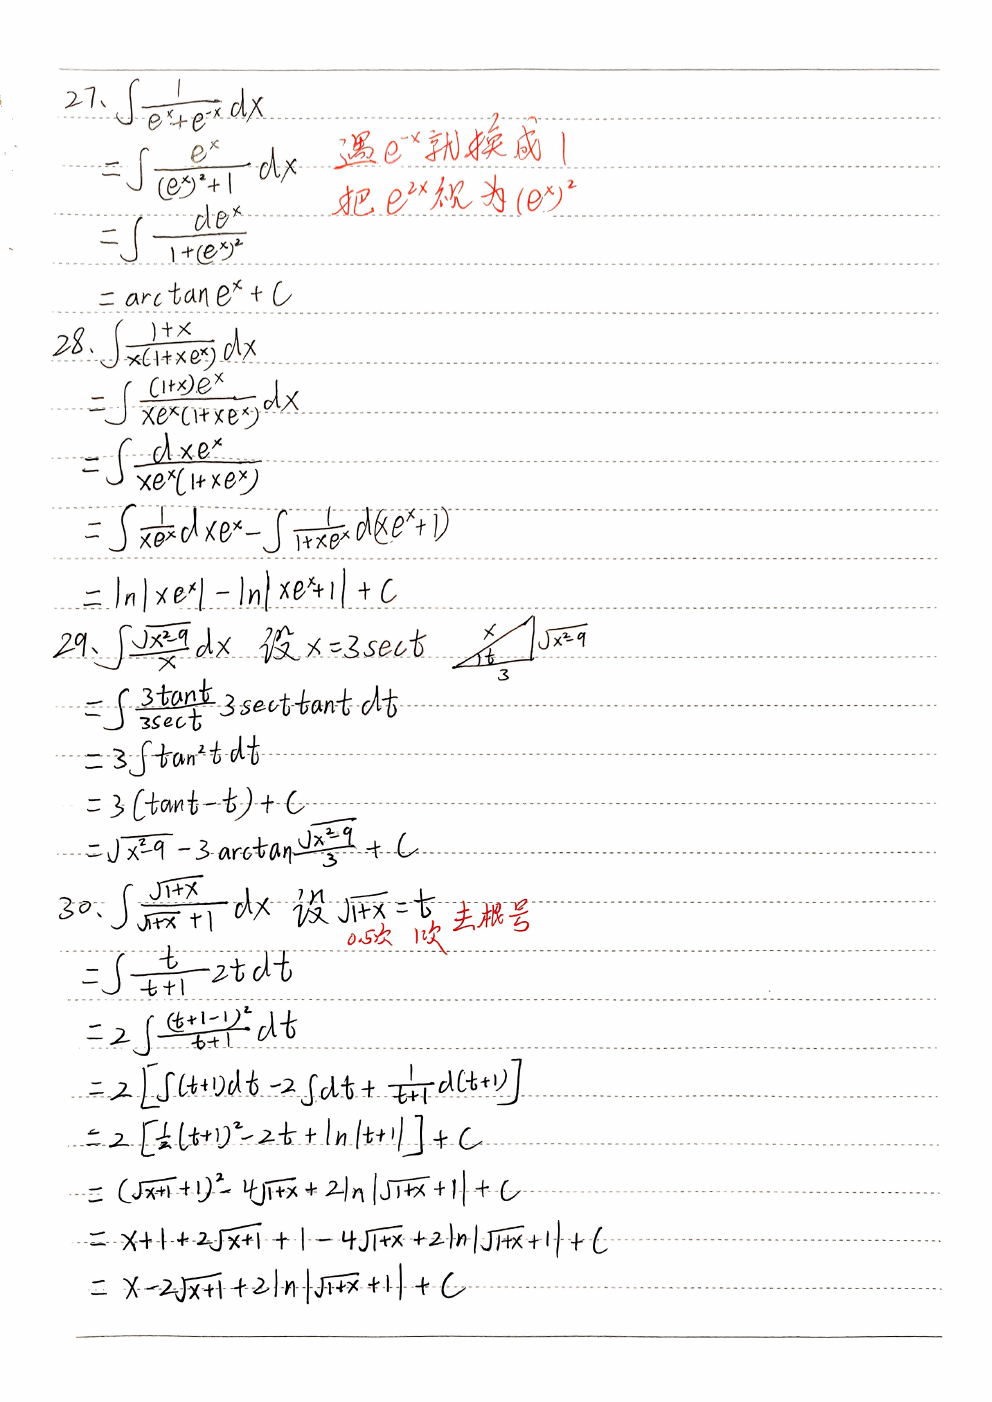 27、∫ 1/(e^x+e^-x) dx
= ∫ e^x/((e^x)²+1) dx 遇e^-x就换成1
把e^2x视为(e^x)²
= ∫ de^x/(1+(e^x)²)
= arctan e^x + C
28、∫ (1+x)/(x(1+xe^x)) dx
= ∫ (1+x)e^x/(xe^x(1+xe^x)) dx
= ∫ dxe^x/(xe^x(1+xe^x))
= ∫ 1/(xe^x) dxe^x - ∫ 1/(1+xe^x) d(xe^x+1)
= ln|xe^x| - ln|xe^x+1| + C
29、∫ √(x²-9)/x dx 设 x=3sect x t 3 √(x²-9)
= ∫ 3tant/3sect 3sect tant dt
= 3∫tan²t dt
= 3(tant-t)+C
= √(x²-9) - 3arctan √(x²-9)/3 + C
30、∫ √(1+x)/(√(1+x)+1) dx 设 √(1+x) = t 去根号
0.5次 1次
= ∫ t/(t+1) 2t dt
= 2∫ (t+1-1)²/(t+1) dt
= 2[∫(t+1)dt - 2∫dt + 1/(t+1) d(t+1)]
= 2[½(t+1)² - 2t + ln|t+1|] + C
= (√(x+1)+1)² - 4√(1+x) + 2ln|√(1+x)+1| + C
= x+1+2√(x+1)+1-4√(1+x)+2ln|√(1+x)+1|+C
= x-2√(x+1)+2ln|√(1+x)+1|+C